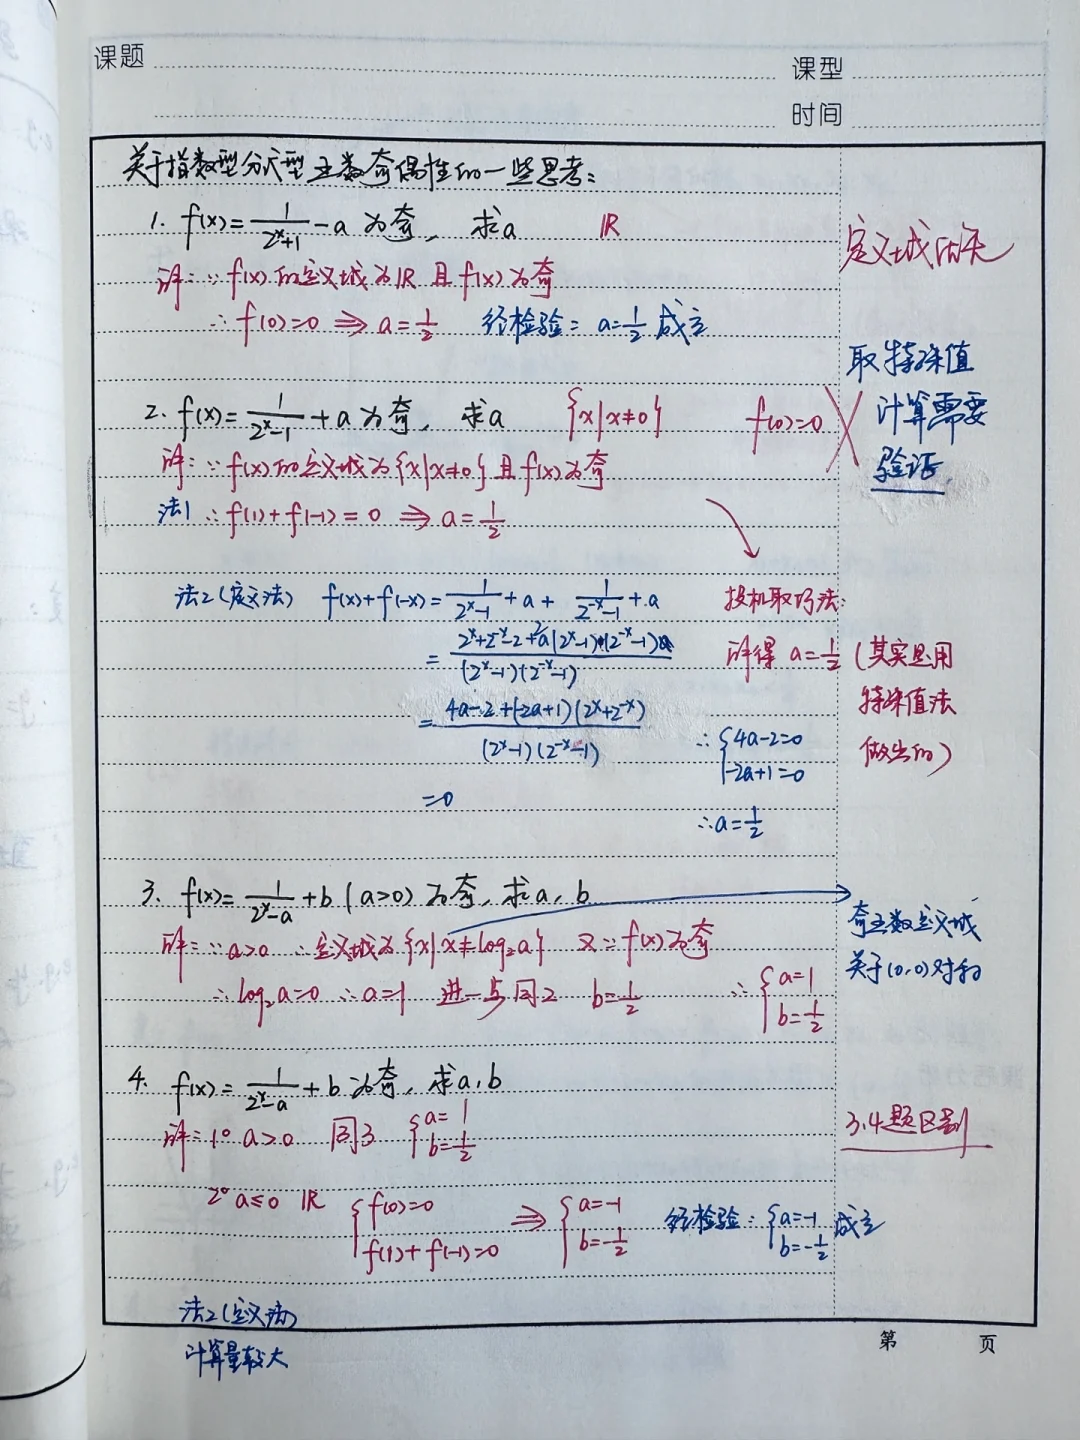 课题
课型
时间
关于指数型分式型函数奇偶性的一些思考:
1. f(x)=1/(2^x+1)-a 为奇, 求a IR
定义域优先
解: ∵ f(x)的定义域为IR 且f(x)为奇
∴ f(0)=0 ⇒ a=1/2 经检验: a=1/2 成立
取特殊值
计算需要
验证
2. f(x)=1/(2^x-1)+a 为奇, 求a {x|x≠0} f(0)=0 ×
解: ∵ f(x)的定义域为{x|x≠0}且f(x)为奇
法1 ∴ f(1)+f(-1)=0 ⇒ a=1/2
法2(定义法) f(x)+f(-x)=1/(2^x-1)+a+1/(2^-x-1)+a
=(2^x+2^-x-2+2a(2^x-1)(2^-x-1))/((2^x-1)(2^-x-1))
=(4a-2+(-2a+1)(2^x+2^-x))/((2^x-1)(2^-x-1))
=0
∴ {4a-2=0
-2a+1=0
∴a=1/2
投机取巧法:
解得 a=1/2 (其实是用
特殊值法
做出的)
3. f(x)=1/(2^x-a)+b (a>0) 为奇, 求a, b
解: ∵a>0 ∴定义域为{x|x≠log₂a} 又∵f(x)为奇
∴log₂a=0 ∴a=1 进一步同2 b=1/2 ∴{a=1
b=1/2
奇函数定义域
关于(0,0)对称
4. f(x)=1/(2^x-a)+b 为奇, 求a,b
解: 1° a>0 同3 {a=1
b=1/2
3.4题区别
2° a≤0 IR {f(0)=0
f(1)+f(-1)=0
⇒ {a=-1
b=-1/2
经检验: {a=-1
b=-1/2
成立
法2(定义法)
计算量较大
第 页